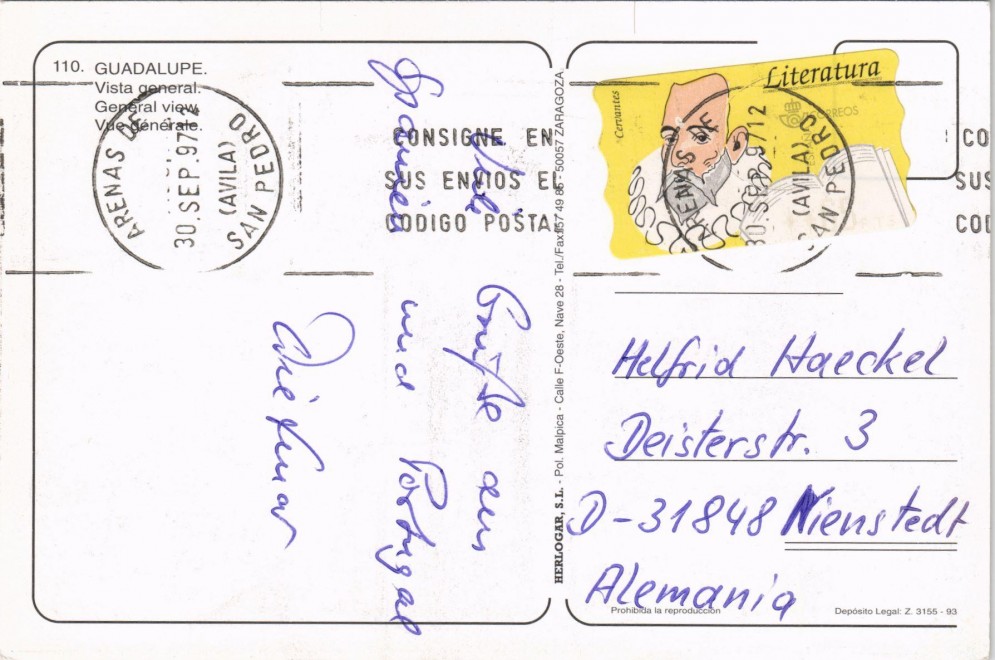 110. GUADALUPE.
Vista general.
General view.
Vue générale.
ARENAS DE
30.SEP.97 12
(AVILA)
SAN PEDRO
CONSIGNE EN
SUS ENVIOS EL
CODIGO POSTA
Viele Grüße aus
Spanien und Portugal
Dietmar
HERLOGAR, S.L. - Pol. Malpica - Calle F-Oeste, Nave 28 - Tel./Fax 57 49 86 - 50057 ZARAGOZA
Literatura
Cervantes
CORREOS
ARENAS DE
30.SEP.97 12
(AVILA)
SAN PEDRO
CO
SUS
COD
Helfrid Haeckel
Deisterstr. 3
D-31848 Nienstedt
Alemania
Prohibida la reproducción
Depósito Legal: Z. 3155 - 93